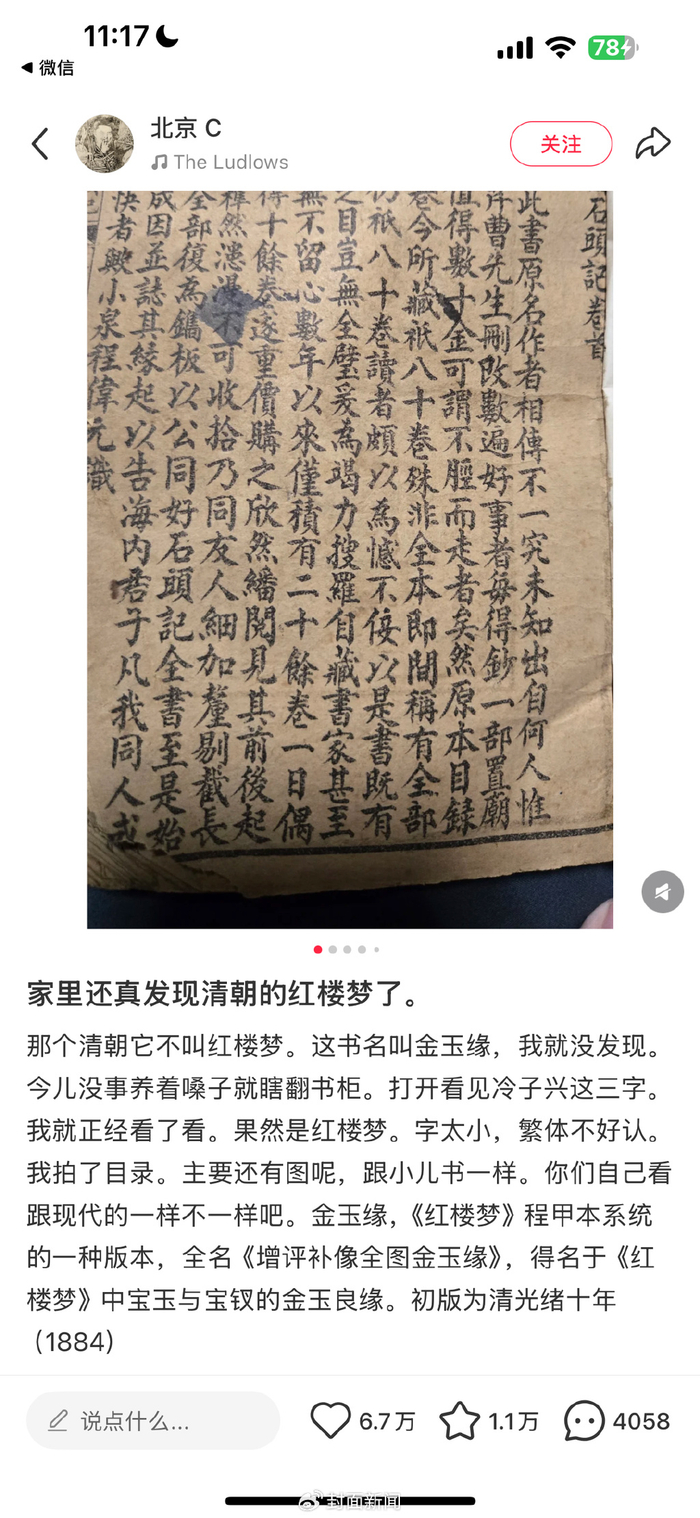 11:17
78
微信
北京 C
The Ludlows
关注
石頭記卷首
此書原名作者相傳不一究未知出自何人惟
曹先生刪改數遍好事者每得鈔一部置廟
值得數十金可謂不脛而走者矣然原本目錄
卷今所藏祇八十卷殊非全本即間稱有全部
仍祇八十卷讀者頗以為憾不佞以是書既有
之目豈無全璧爰為竭力搜羅自藏書家甚至
無不留心數年以來僅積有二十餘卷一日偶
得十餘卷遂重價購之欣然繙閱見其前後起
榫然漶漫不可收拾乃同友人細加釐剔截長
全部復為鐫板以公同好石頭記全書至是始
成因並誌其緣起以告海內君子凡我同人或
快者歟小泉程偉元識
家里还真发现清朝的红楼梦了。
那个清朝它不叫红楼梦。这书名叫金玉缘，我就没发现。
今儿没事养着嗓子就瞎翻书柜。打开看见冷子兴这三字。
我就正经看了看。果然是红楼梦。字太小，繁体不好认。
我拍了目录。主要还有图呢，跟小儿书一样。你们自己看
跟现代的一样不一样吧。金玉缘，《红楼梦》程甲本系统
的一种版本，全名《增评补像全图金玉缘》，得名于《红
楼梦》中宝玉与宝钗的金玉良缘。初版为清光绪十年
（1884）
说点什么...
6.7万
1.1万
4058
封面新闻